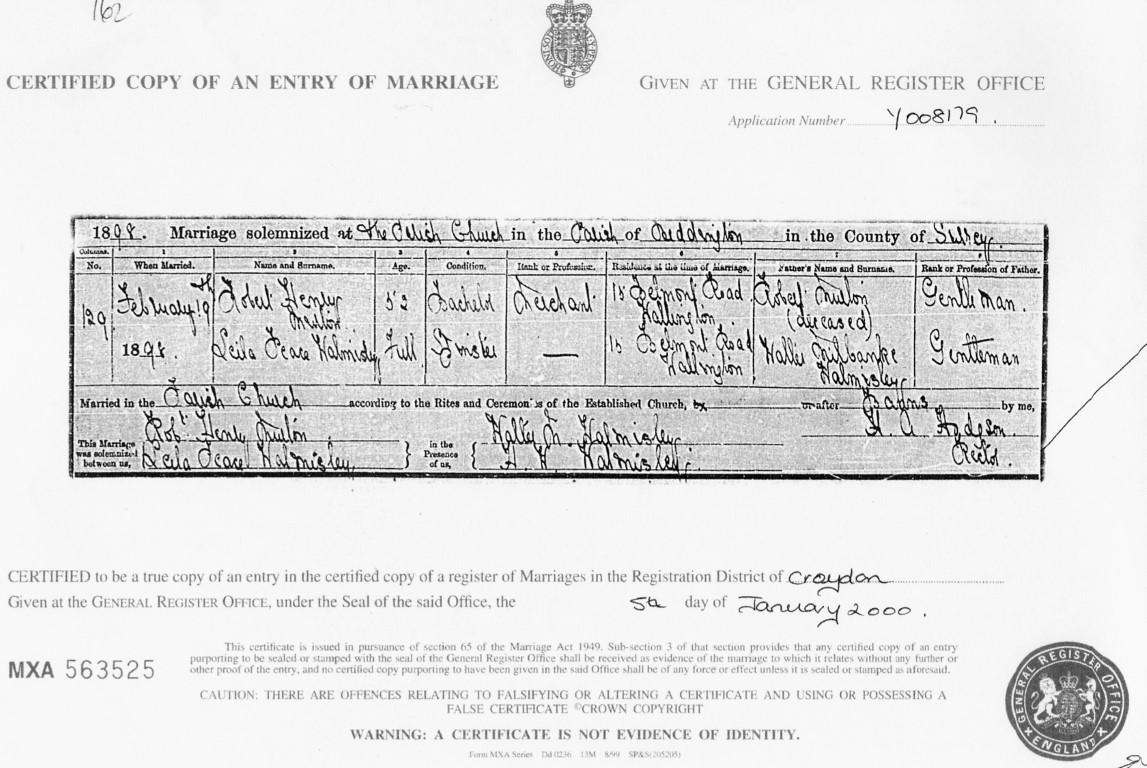 162
CERTIFIED COPY OF AN ENTRY OF MARRIAGE
GIVEN AT THE GENERAL REGISTER OFFICE
Application Number Y008179.
1898. Marriage solemnized at The Parish Church in the Parish of Beddington in the County of Surrey
Columns. 1 2 3 4 5 6 7 8
No. When Married. Name and Surname. Age. Condition. Rank or Profession. Residence at the time of Marriage. Father's Name and Surname. Rank or Profession of Father.
129 February 19th Robert Henry 52 Bachelor Merchant 18 Belmont Road Wallington Robert (deceased) Gentleman.
1898. Leila Peace Walmisley Full Spinster — 15 Belmont Road Wallington Walter Milbanke Walmisley Gentleman
Married in the Parish Church according to the Rites and Ceremonies of the Established Church, by or after Banns by me,
This Marriage was solemnized between us, Robt Henry
Leila Peace Walmisley
in the Presence of us, Walter M. Walmisley
H. W. Walmisley
H. A. Hodgson.
Rector.
CERTIFIED to be a true copy of an entry in the certified copy of a register of Marriages in the Registration District of Croydon
Given at the GENERAL REGISTER OFFICE, under the Seal of the said Office, the 5th day of January 2000.
MXA 563525
This certificate is issued in pursuance of section 65 of the Marriage Act 1949. Sub-section 3 of that section provides that any certified copy of an entry
purporting to be sealed or stamped with the seal of the General Register Office shall be received as evidence of the marriage to which it relates without any further or
other proof of the entry, and no certified copy purporting to have been given in the said Office shall be of any force or effect unless it is sealed or stamped as aforesaid.
CAUTION: THERE ARE OFFENCES RELATING TO FALSIFYING OR ALTERING A CERTIFICATE AND USING OR POSSESSING A
FALSE CERTIFICATE ©CROWN COPYRIGHT
WARNING: A CERTIFICATE IS NOT EVIDENCE OF IDENTITY.
Form MXA Series Dd 0236 13M 8/99 SP&S(205205)
GENERAL REGISTER OFFICE
ENGLAND